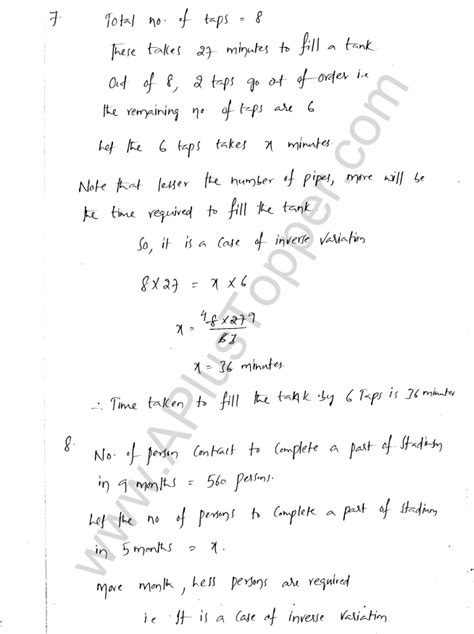 7 Total no. of taps = 8
These takes 27 minutes to fill a tank
Out of 8, 2 taps go out of order i.e
the remaining no of taps are 6
Let the 6 taps takes x minutes.
Note that lesser the number of pipes, more will be
the time required to fill the tank.
So, it is a case of inverse variation
8 × 27 = x × 6
x = 4 8 × 27 9
6 3
x = 36 minutes
∴ Time taken to fill the tank by 6 Taps is 36 minutes
8. No. of person contract to complete a part of stadium
in 9 months = 560 persons.
Let the no of persons to complete a part of stadium
in 5 months = x.
More month, Less persons are required
i.e It is a case of inverse variation.
www.APlusTopper.com